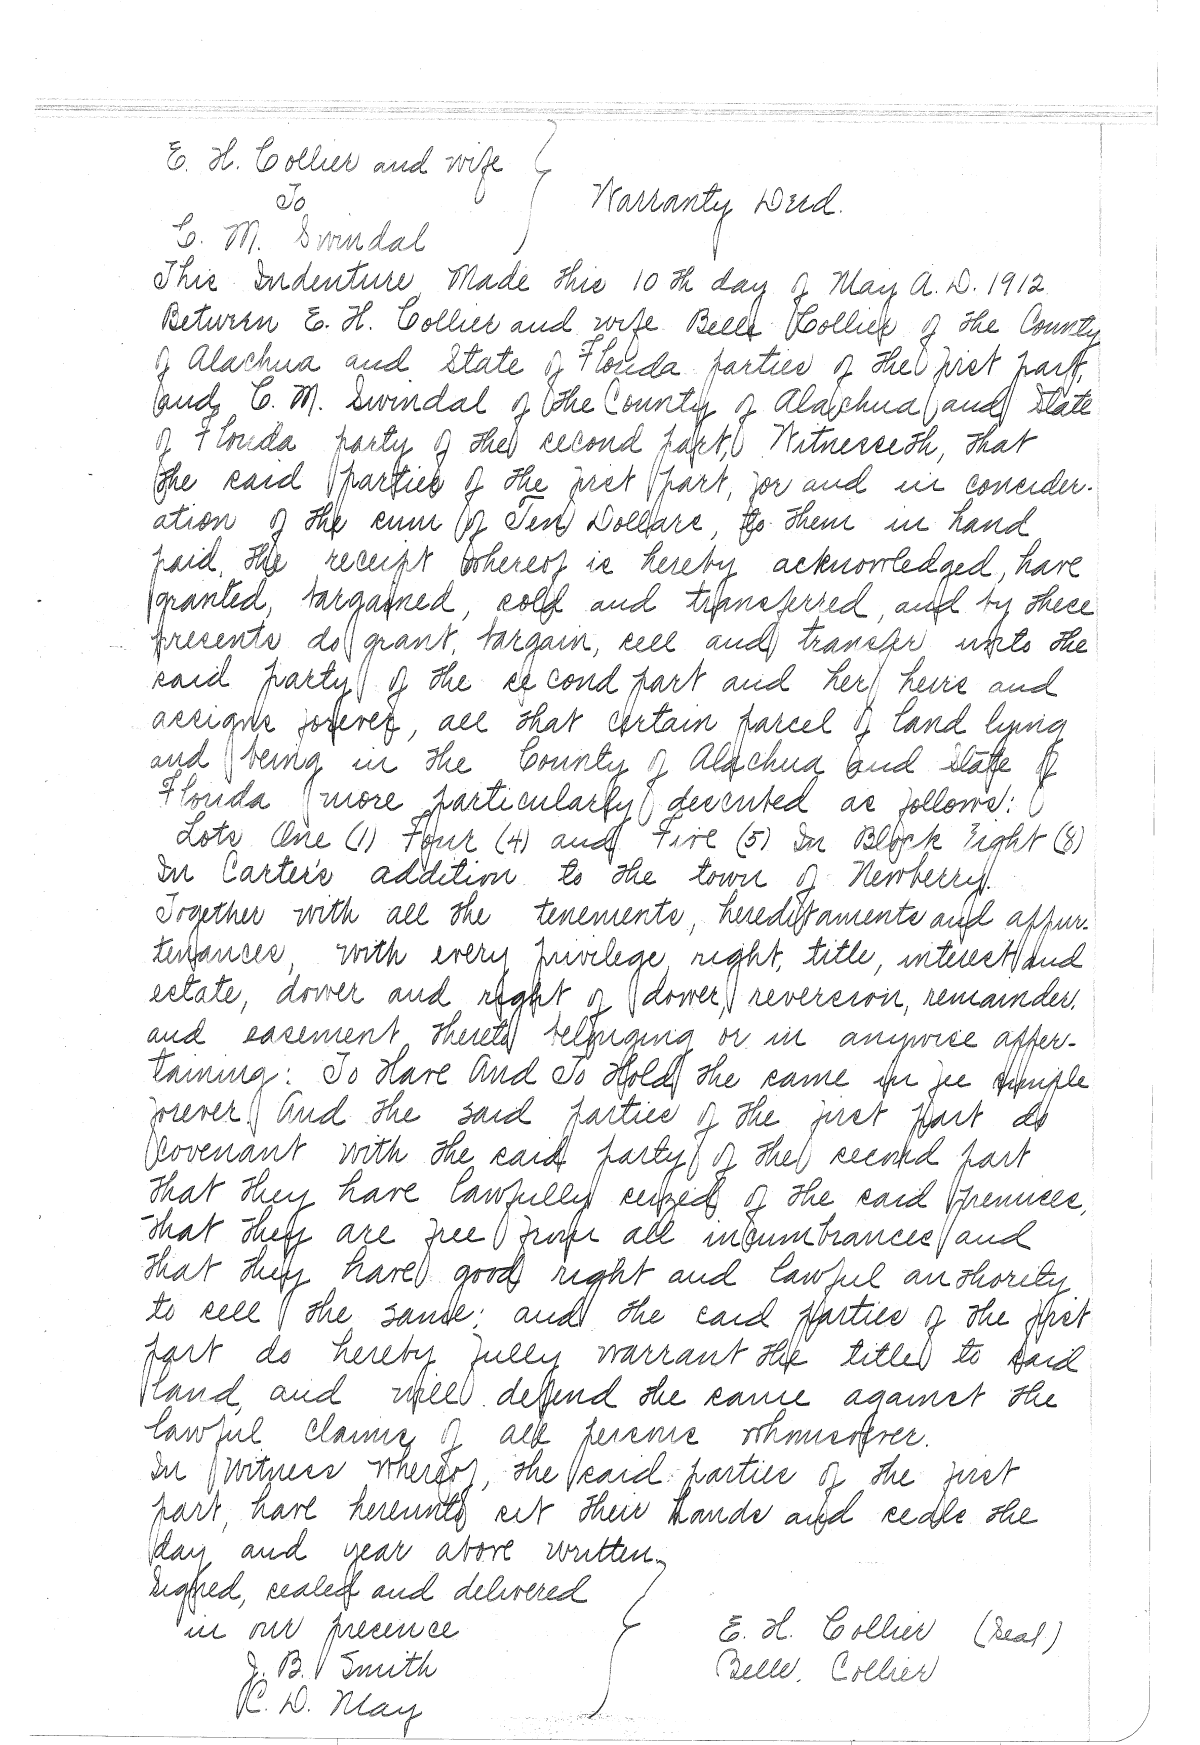 E. H. Collier and wife
To
Warranty Deed.
C. M. Swindal
This Indenture, Made this 10th day of May A. D. 1912
Between E. H. Collier and wife Belle Collier of the County
of Alachua and State of Florida parties of the first part,
and, C. M. Swindal of the County of Alachua and State
of Florida party of the second part, Witnesseth, that
the said parties of the first part, for and in consider-
ation of the sum of Ten Dollars, to them in hand
paid, the receipt whereof is hereby acknowledged, have
granted, bargained, sold and transferred, and by these
presents do grant, bargain, sell and transfer unto the
said party of the second part and her heirs and
assigns forever, all that certain parcel of land lying
and being in the County of Alachua and State of
Florida more particularly described as follows:
Lots One (1) Four (4) and Five (5) In Block Eight (8)
In Carter's addition to the town of Newberry.
Together with all the tenements, hereditaments and appur-
tenances, with every privilege, right, title, interest and
estate, dower and right of dower, reversion, remainder,
and easement thereto belonging or in anywise apper-
taining: To Have And To Hold the same in fee simple
forever. And the said parties of the first part do
covenant with the said party of the second part
that they have lawfully seized of the said premises,
that they are free from all incumbrances and
that they have good right and lawful authority
to sell the same; and the said parties of the first
part do hereby fully warrant the title to said
land, and will defend the same against the
lawful claims of all persons whomsoever.
In Witness Whereof, the said parties of the first
part, have hereunto set their hands and seals the
day and year above written.
Signed, sealed and delivered
in our presence
E. H. Collier (Seal)
J. B. Smith
Belle. Collier
C. D. May